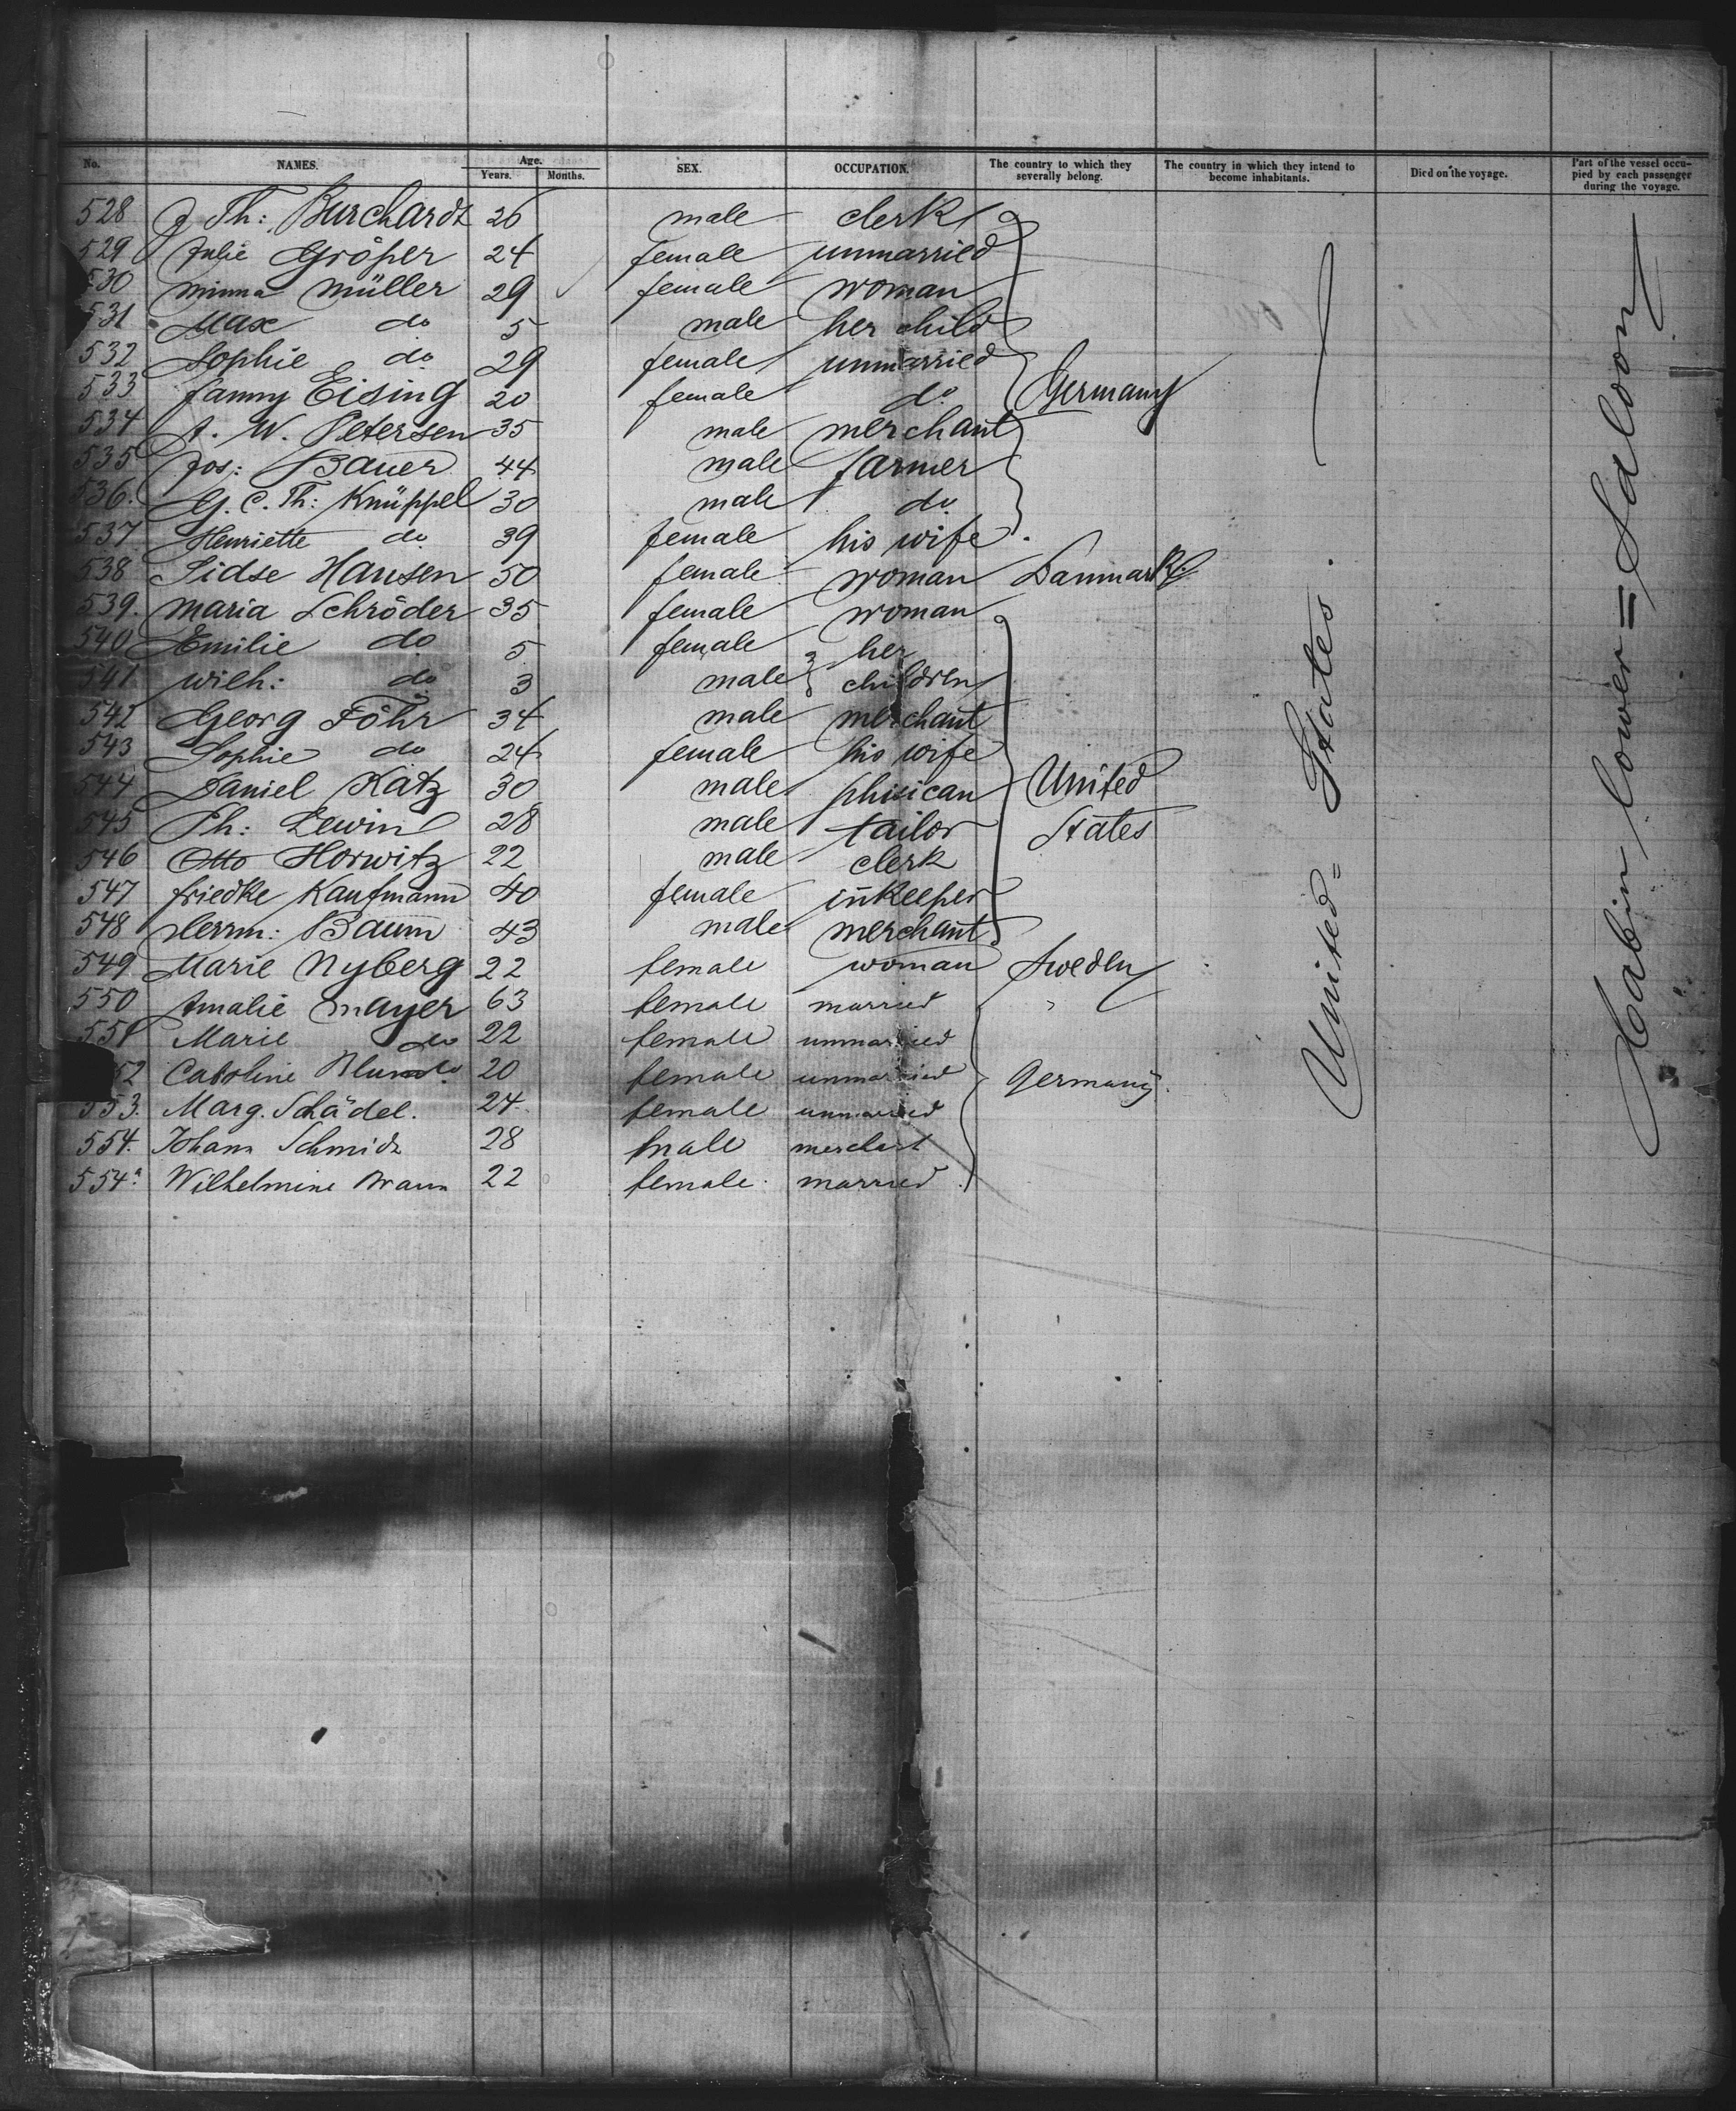 No. NAMES. Age. Years. Months. SEX. OCCUPATION. The country to which they severally belong. The country in which they intend to become inhabitants. Died on the voyage. Part of the vessel occupied by each passenger during the voyage.
528 J Th: Burchardt 26 male clerk
529 Julie Gröper 24 female unmarried
530 Minna Müller 29 female woman
531 Max do 5 male her child
532 Sophie do 29 female unmarried
533 Fanny Eising 20 female do Germany
534 A. W. Petersen 35 male merchant
535 Jos: Bauer 44 male farmer
536. G. C. Th: Knüppel 30 male do
537 Henriette do 39 female his wife
538 Sidse Hansen 50 female woman Danmark
539. Maria Schröder 35 female woman
540 Emilie do 5 female her
541 Wilh: do 3 male children
542 Georg Föhr 34 male merchant
543 Sophie do 24 female his wife
544 Daniel Katz 30 male phisican United
545 Ph: Lewin 28 male tailor States
546 Otto Horwitz 22 male clerk
547 Friedke Kaufmann 40 female inkeeper
548 Herrm: Baum 43 male merchant
549 Marie Nyberg 22 female woman Sweden
550 Amalie Mayer 63 female married
551 Marie do 22 female unmarried
52 Caroline 20 female unmarried Germany
553. Marg. Schädel. 24 female unmarried
554. Johann Schmidt 28 male merchant
554a Wilhelmine Braun 22 female married
United States.
Cabin lower = Saloon